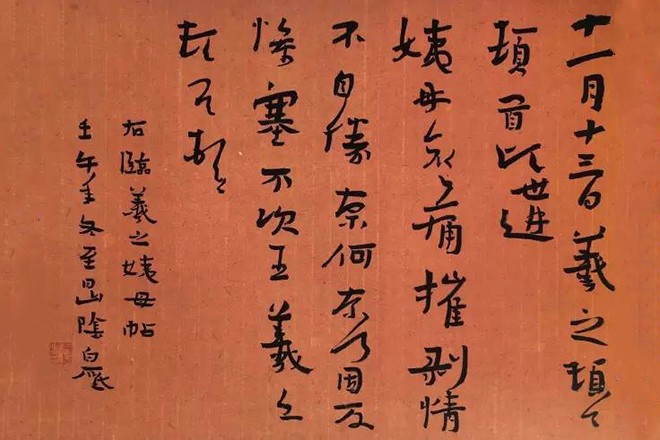 十一月十三日羲之頓首
頓首頃遘
姨母哀哀痛摧剝情
不自勝奈何奈何因反
慘塞不次王羲之
頓首頓首
右臨羲之姨母帖
壬午年冬至日山陰白砥